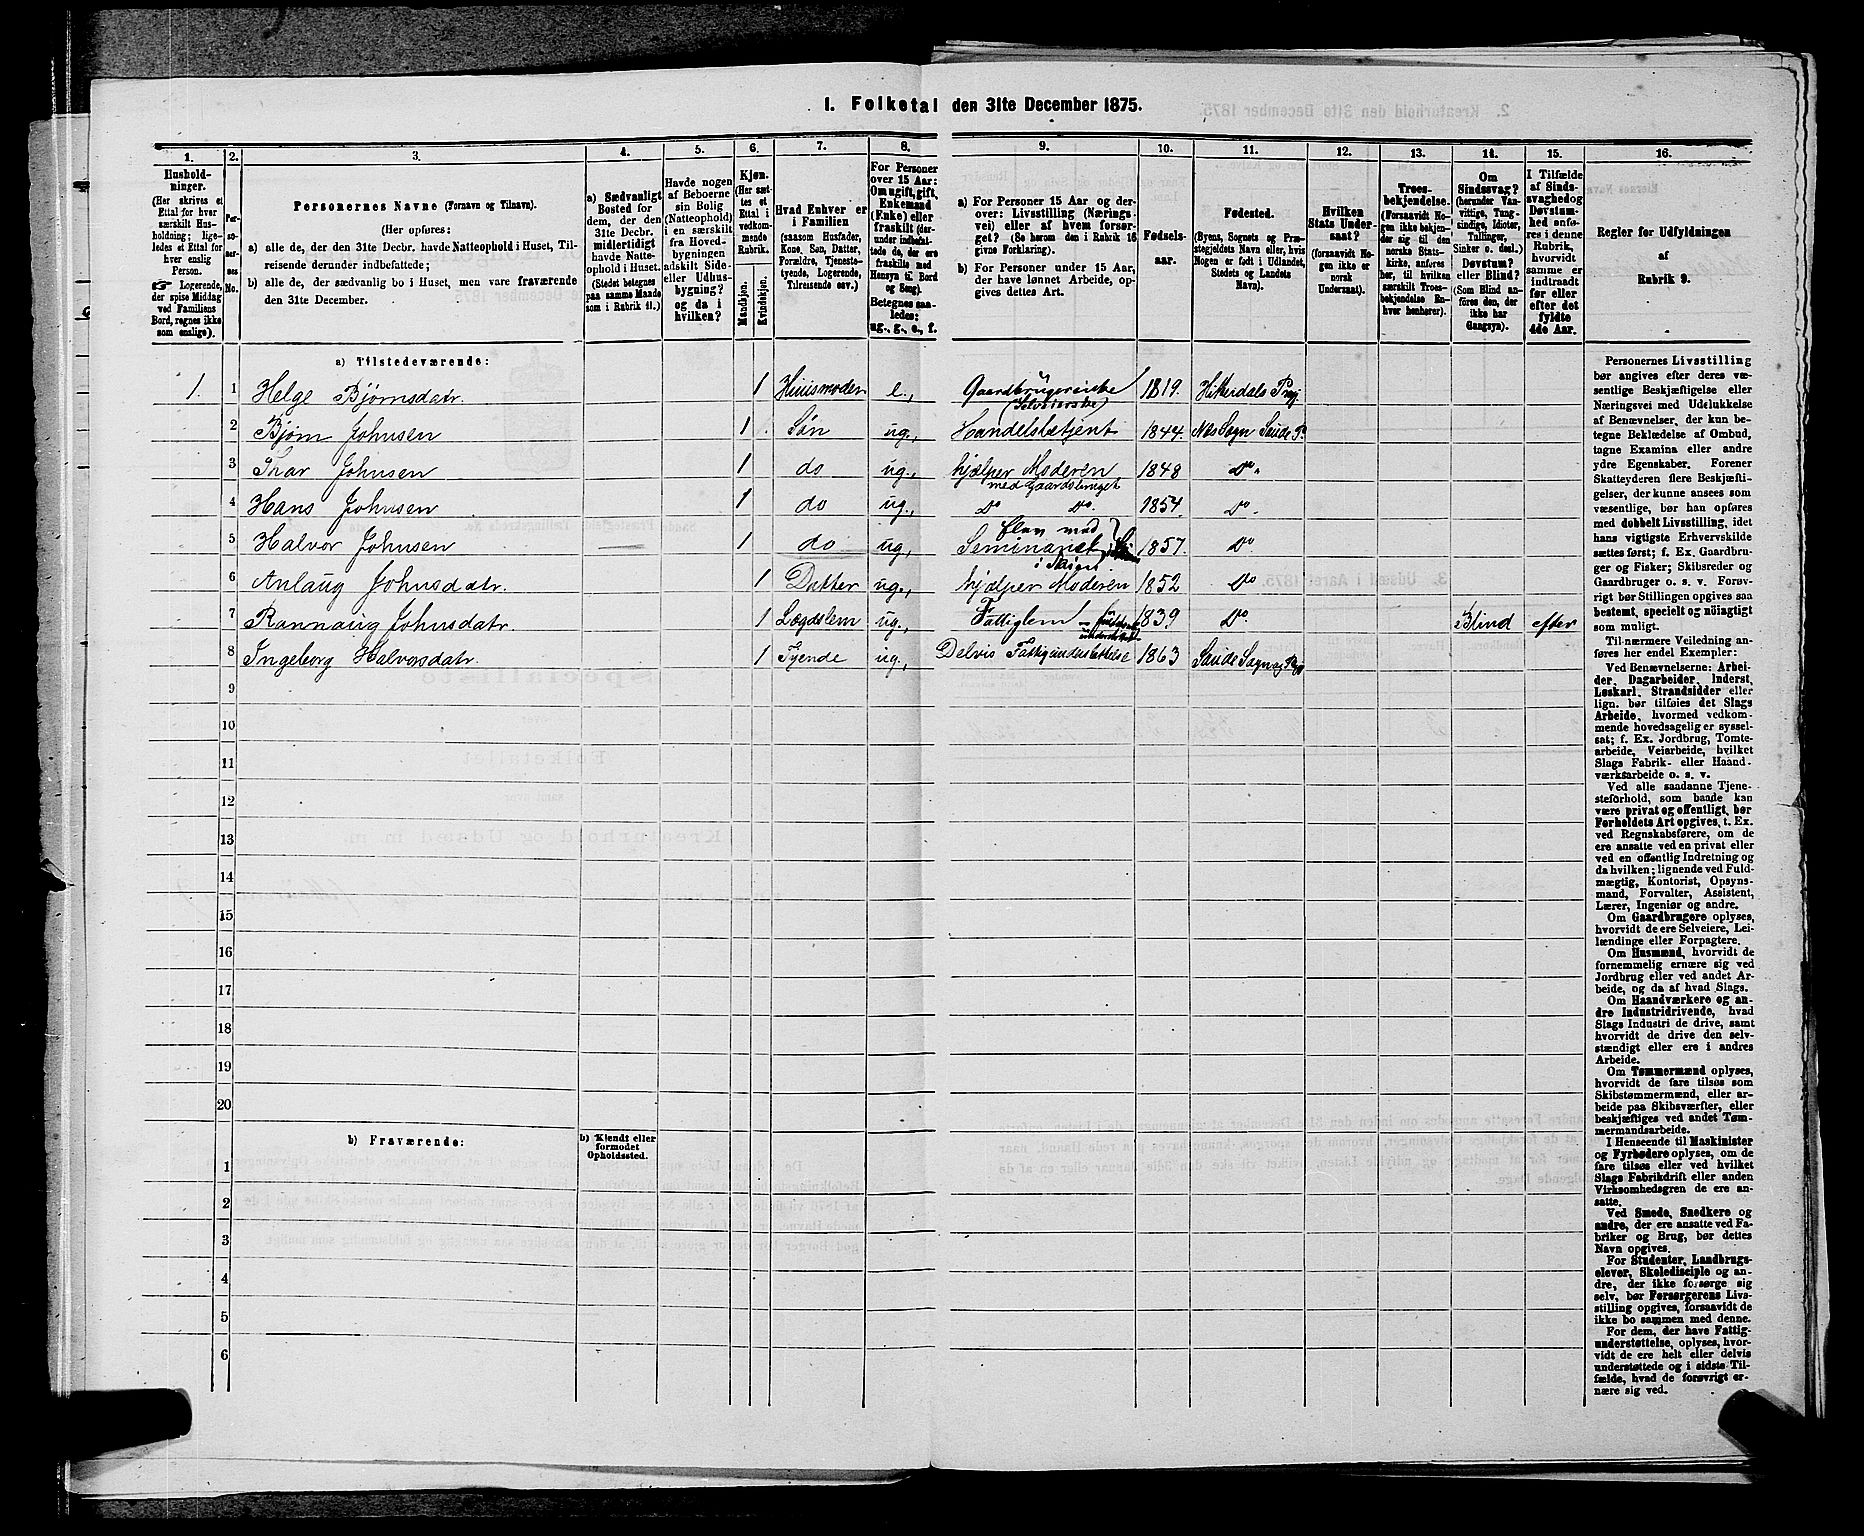 1. Folketal den 31te December 1875.
1. 2. 3. 4. 5. 6. 7. 8. 9. 10. 11. 12. 13. 14. 15. 16.
Hushold-
ninger.
(Her skrives et
Ettal for hver
særskilt Hus-
holdning; lige-
ledes et Ettal for
hver enslig
Person.
☞ Logerende,
der spise Middag
ved Familiens
Bord, regnes ikke
som enslige).
Per-
so-
ner-
nes
No.
Personernes Navne (Fornavn og Tilnavn).
(Her opføres:
a) alle de, der den 31te Decbr. havde Natteophold i Huset, Til-
reisende derunder indbefattede;
b) alle de, der sædvanlig bo i Huset, men vare fraværende
den 31te December.
a) Sædvanligt
Bosted for
dem, der den
31te Decbr.
midlertidigt
havde Natte-
ophold i Huset.
(Stedet betegnes
paa samme Maade
som i Rubrik 11.)
Havde nogen
af Beboerne
sin Bolig
(Natteophold)
i en særskilt
fra Hoved-
bygningen
adskilt Side-
eller Udhus-
bygning?
og da i
hvilken?
Kjøn.
(Her sæt-
tes et
Ettal i
vedkom-
mende
Rubrik.
Mandkjøn.
Kvindekjøn.
Hvad Enhver er
i Familien
(saasom Husfader,
Kone, Søn, Datter,
Forældre, Tjeneste-
tyende, Logerende,
Tilreisende osv.)
For Personer
over 15 Aar:
Om ugift, gift,
Enkemand
(Enke) eller
fraskilt (der-
under indbefat-
tede de, der ere
fraskilte med
Hensyn til Bord
og Seng).
Betegnes saa-
ledes:
ug., g., e., f.
a) For Personer 15 Aar og der-
over: Livsstilling (Nærings-
vei) eller af hvem forsør-
get? (Se herom den i Rubrik 16
givne Forklaring).
b) For Personer under 15 Aar,
der have lønnet Arbeide, op-
gives dettes Art.
Fødsels-
aar.
Fødested.
(Byens, Sognets og Præ-
stegjeldets Navn eller, hvis
Nogen er født i Udlandet,
Stedets og Landets
Navn).
Hvilken
Stats Under-
saat?
(forsaavidt No-
gen ikke er
norsk
Undersaat).
Troes-
bekjendelse.
(Forsaavidt No-
gen ikke bekjen-
der sig til den
norske Stats-
kirke, anføres
her, til hvilken
særskilt Troes-
bekjendelse En-
hver henhører).
Om
Sindssvag?
(herunder Van-
vittige, Tung-
sindige, Idioter,
Tullinger,
Sinker o. desl.)
Døvstum?
eller Blind?
(Som Blind an-
føres den, der
ikke har
Gangsyn).
I Tilfælde
af Sinds-
svaghed og
Døvstum-
hed anfø-
res i denne
Rubrik,
hvorvidt
samme er
indtraadt
før eller
efter det
fyldte
4de Aar.
Regler for Udfyldningen
af
Rubrik 9.
a) Tilstedeværende:
1. 1 Helge Bjørnsdatr. 1 Huusmoder e., Gaardbrugerenke (Selveierske) 1819. Hitterdals Prgj.
2 Bjørn Johnsen 1 Søn ug., Handelsbetjent 1844. Næs Sogn Saude P.
3 Ivar Johnsen 1 do ug., hjælper Moderen med Gaardsbruget 1848 Do.
4 Hans Johnsen 1 do ug., Do Do. 1854. Do.
5 Halvor Johnsen 1 do ug, Elev med Seminariet i Skien 1857. Do
6 Anlaug Johnsdatr. 1 Datter ug., hjælper Moderen 1852 Do
7 Rannaug Johnsdatr. 1 Lægdslem ug., Fattiglem 1839 Do. Blind efter
8 Ingeborg Halvorsdatr. 1 Tyende ug., Delvis Fattigunderstøttelse 1863 Saude Sogn og Prgj
9
10
11
12
13
14
15
16
17
18
19
20
b) Fraværende:
b) Kjendt eller
formodet
Opholdssted.
1
2
3
4
5
6
Personernes Livsstilling
bør angives efter deres væ-
sentlige Beskjæftigelse eller
Næringsvei med Udelukkelse
af Benævnelser, der kun be-
tegne Beklædelse af Ombud,
tagne Examina eller andre
ydre Egenskaber. Forener
Skatteyderen flere Beskjæfti-
gelser, der kunne ansees som
væsentlige, bør han opføres
med dobbelt Livsstilling, idet
hans vigtigste Erhvervskilde
sættes først; f. Ex. Gaardbru-
ger og Fisker; Skibsreder og
Gaardbruger o. s. v. Forøv-
rigt bør Stillingen opgives saa
bestemt, specielt og nøiagtigt
som muligt.
Til nærmere Veiledning an-
føres her endel Exempler:
Ved Benævnelserne: Arbei-
der, Dagarbeider, Inderst,
Løskarl, Strandsidder eller
lign. bør tilføies det Slags
Arbeide, hvormed vedkom-
mende hovedsagelig er syssel-
sat; f. Ex. Jordbrug, Tomte-
arbeide, Veiarbeide, hvilket
Slags Fabrik- eller Haand-
værksarbeide o. s. v.
Ved alle saadanne Tjene-
steforhold, som baade kan
være privat og offentligt, bør
Forholdets Art opgives, t. Ex.
ved Regnskabsførere, om de
ere ansatte ved en privat eller
ved en offentlig Indretning og
da hvilken; lignende ved Fuld-
mægtig, Kontorist, Opsyns-
mand, Forvalter, Assistent,
Lærer, Ingeniør og andre.
Om Gaardbrugere oplyses,
hvorvidt de ere Selveiere, Lei-
lændinge eller Forpagtere.
Om Husmænd, hvorvidt de
fornemmelig ernære sig ved
Jordbrug eller ved andet Ar-
beide, og da af hvad Slags.
Om Haandværkere og an-
dre Industridrivende, hvad
Slags Industri de drive, samt
hvorvidt de drive den selv-
stændigt eller ere i andres
Arbeide.
Om Tømmermænd oplyses,
hvorvidt de fare tilsøs som
Skibstømmermænd, eller ar-
beide paa Skibsværfter, eller
beskjæftiges ved andet Tøm-
mermandsarbeide.
I Henseende til Maskinister
og Fyrbødere oplyses, om de
fare tilsøs eller ved hvilket
Slags Fabrikdrift eller anden
Virksomhedsgren de ere an-
satte.
Ved Smede, Snedkere og
andre, der ere ansatte ved Fa-
briker og Brug, bør dettes
Navn opgives.
For Studenter, Landbrugs-
elever, Skoledisciple og an-
dre, der ikke forsørge sig
selv, bør Forsørgerens Livs-
stilling opgives, forsaavidt de
ikke bo sammen med denne.
For dem, der have Fattig-
understøttelse, oplyses, hvor-
vidt de ere helt eller delvis
understøttede og i sidste Til-
fælde, hvad de forøvrigt er-
nære sig ved.